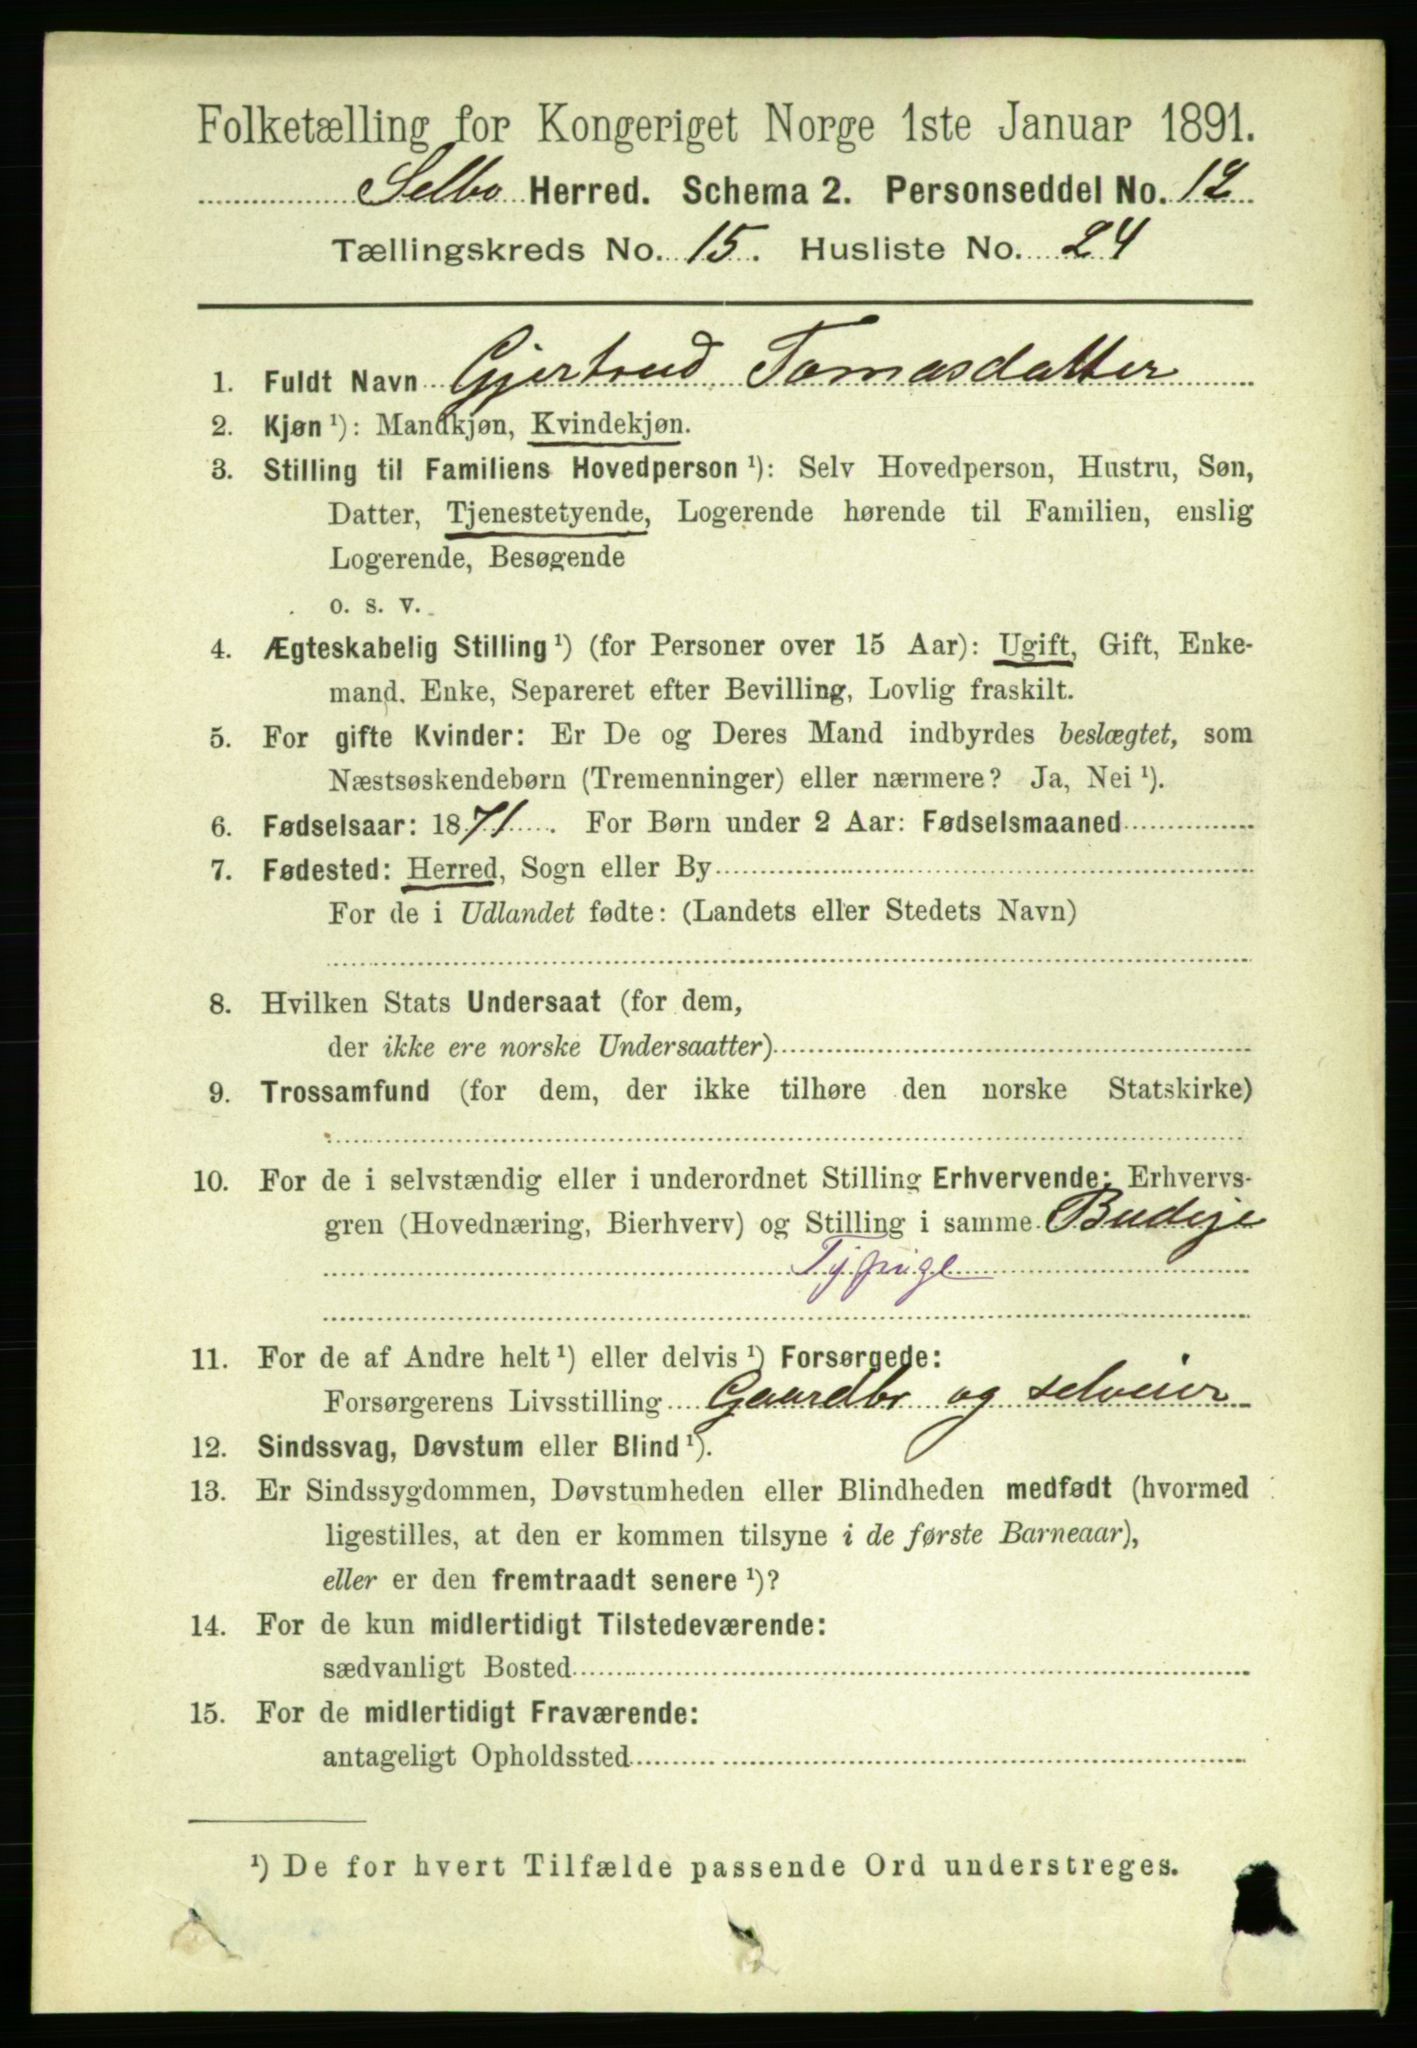 Folketælling for Kongeriget Norge 1ste Januar 1891.
Selbo Herred. Schema 2. Personseddel No. 12
Tællingskreds No. 15. Husliste No. 24
1. Fuldt Navn Gjertrud Tomasdatter
2. Kjøn ¹): Mandkjøn, Kvindekjøn.
3. Stilling til Familiens Hovedperson ¹): Selv Hovedperson, Hustru, Søn,
Datter, Tjenestetyende, Logerende hørende til Familien, enslig
Logerende, Besøgende
o. s. v.
4. Ægteskabelig Stilling ¹) (for Personer over 15 Aar): Ugift, Gift, Enke-
mand. Enke, Separeret efter Bevilling, Lovlig fraskilt.
5. For gifte Kvinder: Er De og Deres Mand indbyrdes beslægtet, som
Næstsøskendebørn (Tremenninger) eller nærmere? Ja, Nei ¹).
6. Fødselsaar: 1871. For Børn under 2 Aar: Fødselsmaaned
7. Fødested: Herred, Sogn eller By
For de i Udlandet fødte: (Landets eller Stedets Navn)
8. Hvilken Stats Undersaat (for dem,
der ikke ere norske Undersaatter)
9. Trossamfund (for dem, der ikke tilhøre den norske Statskirke)
10. For de i selvstændig eller i underordnet Stilling Erhvervende: Erhvervs-
gren (Hovednæring, Bierhverv) og Stilling i samme Budeje
Tj
11. For de af Andre helt ¹) eller delvis ¹) Forsørgede:
Forsørgerens Livsstilling Gaardbr og selveier
12. Sindssvag, Døvstum eller Blind ¹).
13. Er Sindssygdommen, Døvstumheden eller Blindheden medfødt (hvormed
ligestilles, at den er kommen tilsyne i de første Barneaar),
eller er den fremtraadt senere ¹)?
14. For de kun midlertidigt Tilstedeværende:
sædvanligt Bosted
15. For de midlertidigt Fraværende:
antageligt Opholdssted
¹) De for hvert Tilfælde passende Ord understreges.